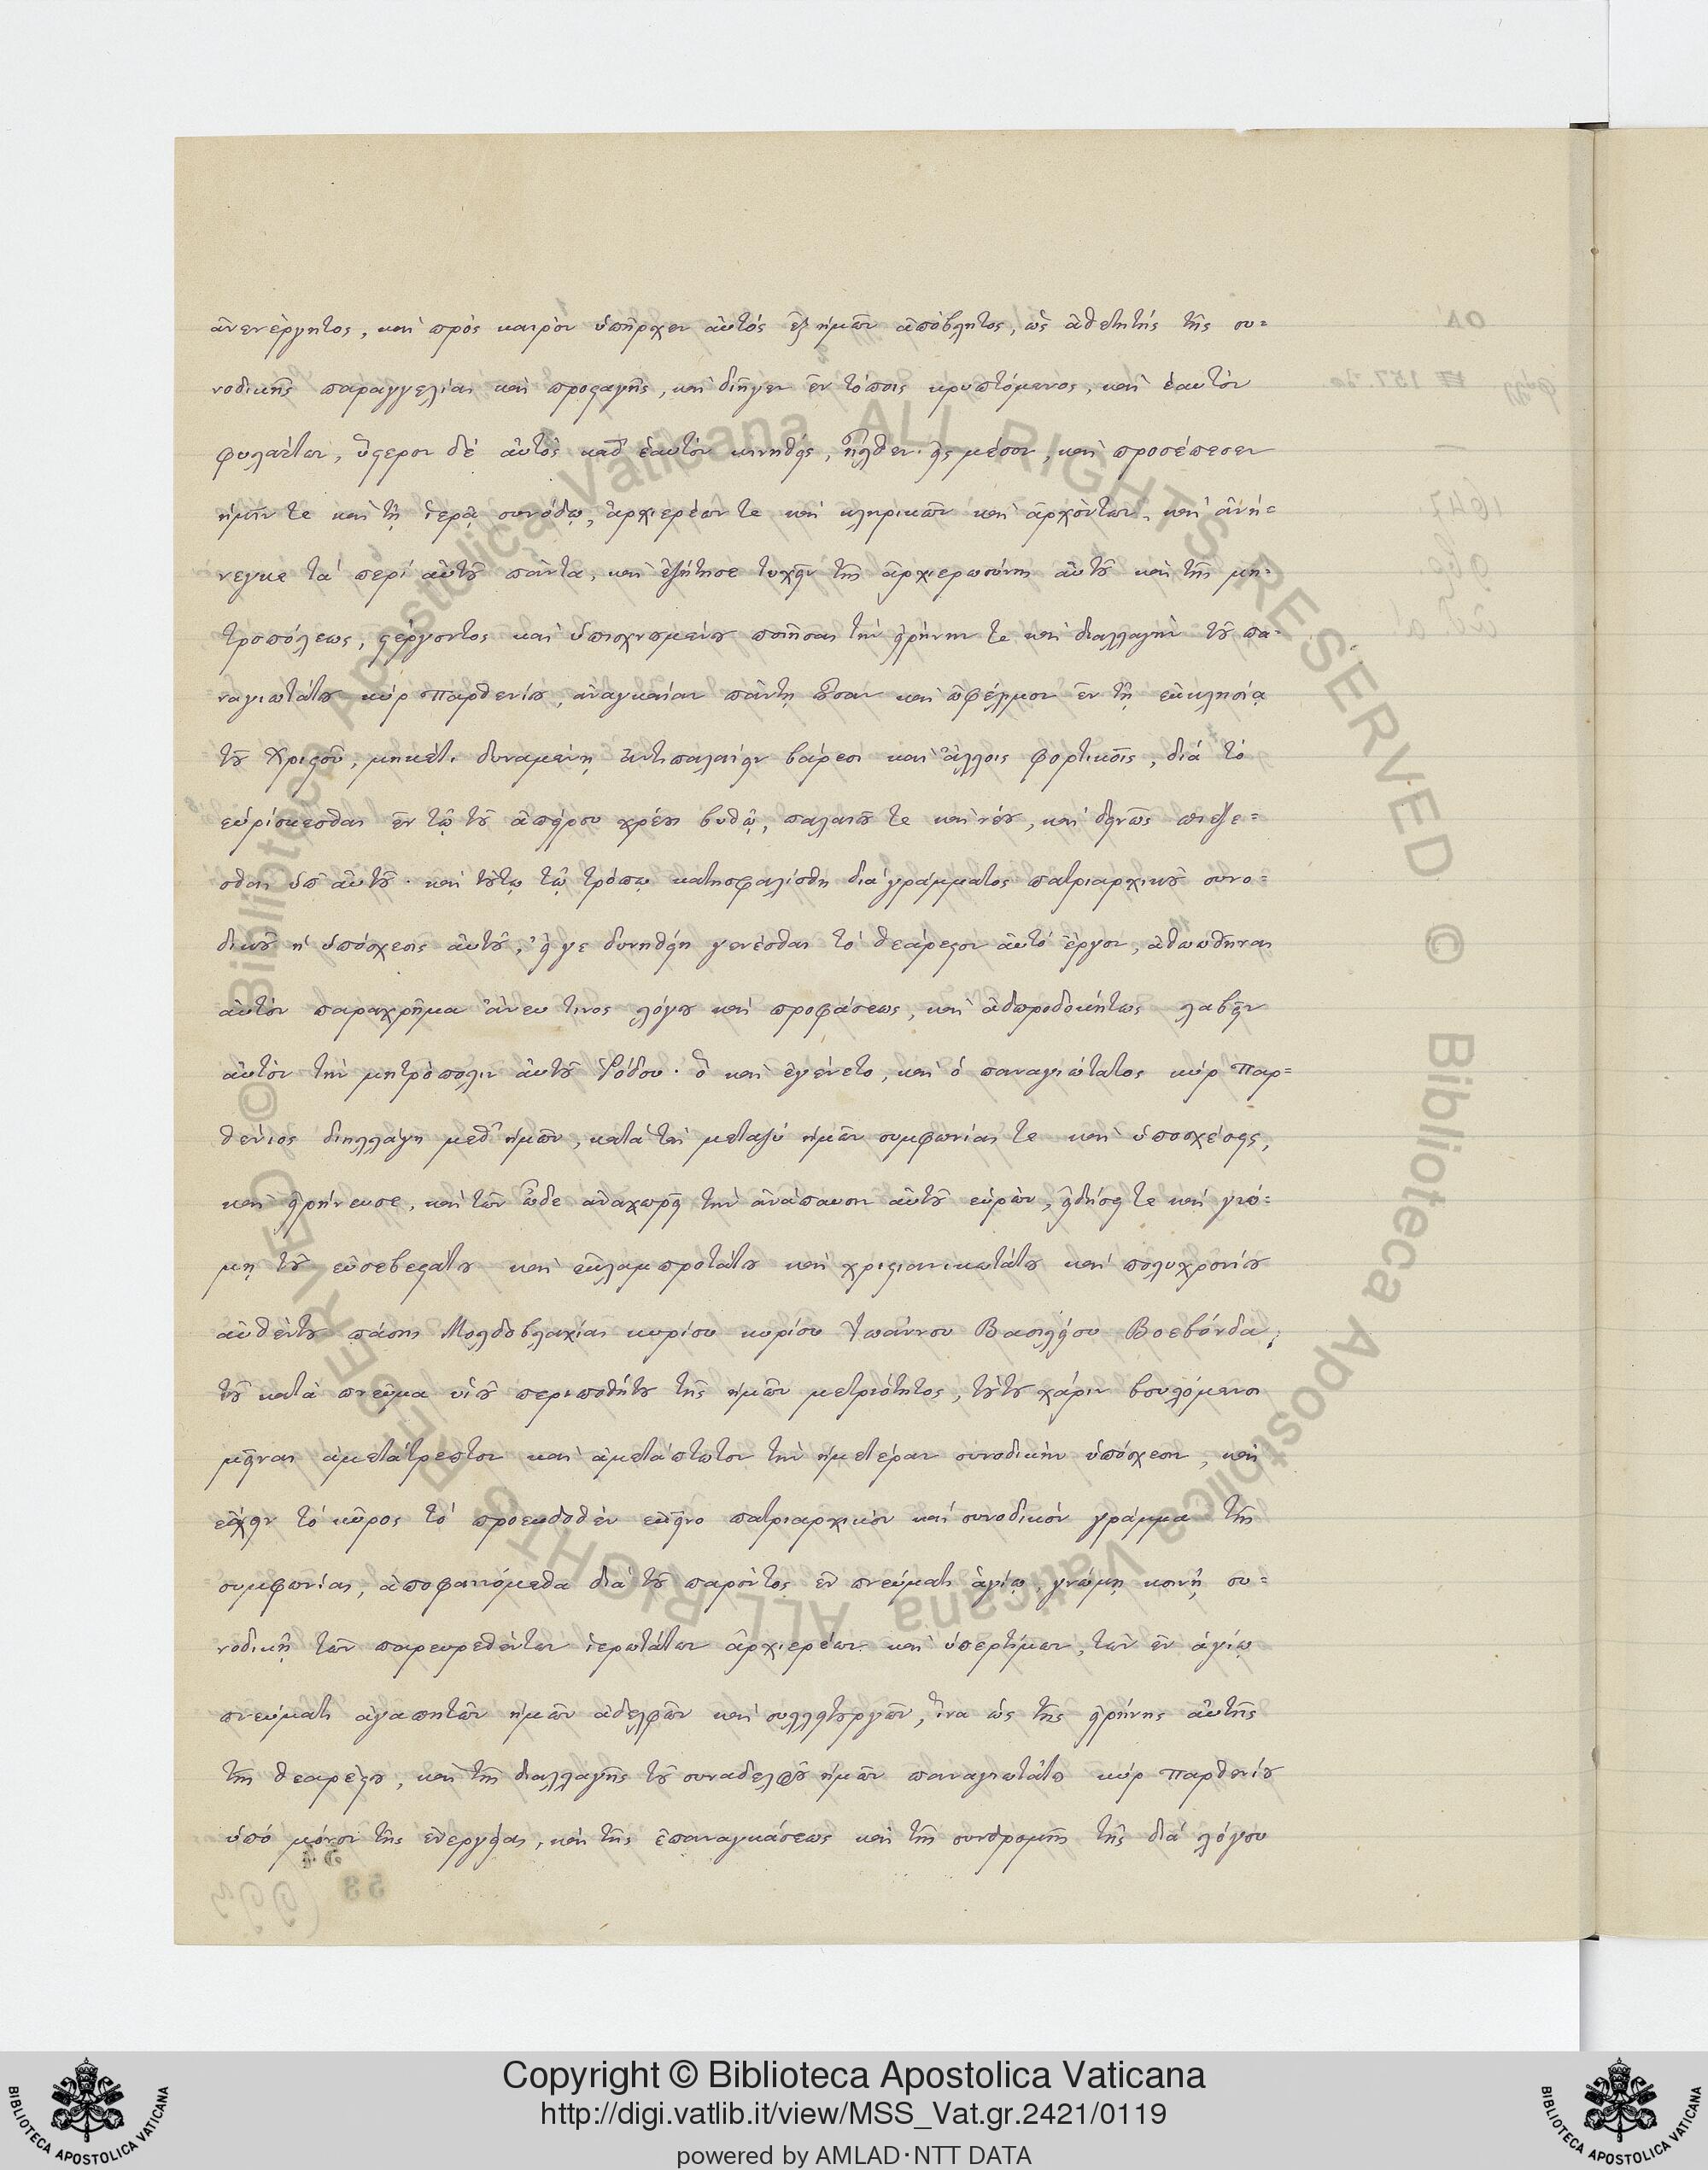 ἀνενέργητος, καὶ πρὸς καιρὸν ὑπῆρχεν αὐτὸς ἐξ ἡμῶν ἀπόβλητος, ὡς ἀθετητὴς τῆς συ=
νοδικῆς παραγγελίας καὶ προσταγῆς, καὶ διῆγεν ἐν τόποις κρυπτόμενος, καὶ ἑαυτὸν
φυλάττων, ὕστερον δὲ αὐτὸς καθ' ἑαυτὸν κινηθεὶς, ἦλθεν εἰς μέσον, καὶ προσέπεσεν
ἡμῖν τε καὶ τῇ ἱερᾷ συνόδῳ, ἀρχιερέων τε καὶ κληρικῶν καὶ ἀρχόντων, καὶ ἀνή=
νεγκε τὰ περὶ αὐτοῦ πάντα, καὶ ἐζήτησε τυχεῖν τῆς ἀρχιερωσύνης αὐτοῦ καὶ τῆς μη=
τροπόλεως, στέργοντος καὶ ὑπισχνουμένου ποιῆσαι τὴν εἰρήνην τε καὶ διαλλαγὴν τοῦ πα=
ναγιωτάτου κὺρ Παρθενίου, ἀναγκαίαν πάντῃ οὖσαν καὶ ὠφέλιμον ἐν τῇ ἐκκλησίᾳ
τοῦ Χριστοῦ, μηκέτι δυναμένῃ ἀντιπαλαίειν βάρεσι καὶ ἄλλοις φορτικοῖς, διὰ τὸ
εὑρίσκεσθαι ἐν τῷ τοῦ ἀπείρου χρέους βυθῷ, παλαιοῦ τε καὶ νέου, καὶ δεινῶς πιέζε=
σθαι ὑπ' αὐτοῦ· καὶ τούτῳ τῷ τρόπῳ κατησφαλίσθη διὰ γράμματος πατριαρχικοῦ συνο=
δικοῦ ἡ ὑπόσχεσις αὐτοῦ, εἴ γε δυνηθείη γενέσθαι τὸ θεάρεστον αὐτὸ ἔργον, ἀθωωθῆναι
αὐτὸν παραχρῆμα ἄνευ τινος λόγου καὶ προφάσεως, καὶ ἀδωροδοκήτως λαβεῖν
αὐτὸν τὴν μητρόπολιν αὐτοῦ Ῥόδου· ὃ καὶ ἐγένετο, καὶ ὁ παναγιώτατος κὺρ Παρ=
θένιος διηλλάγη μεθ' ἡμῶν, κατὰ τὰς μεταξὺ ἡμῶν συμφωνίας τε καὶ ὑποσχέσεις,
καὶ εἰρήνευσε, καὶ τῶν ὧδε ἀναχωρεῖ τὴν ἀνάπαυσιν αὐτοῦ εὑρὼν, εἰδήσει τε καὶ γνώ=
μῃ τοῦ εὐσεβεστάτου καὶ ἐκλαμπροτάτου καὶ χριστιανικωτάτου καὶ πολυχρονίου
αὐθέντου πάσης Μολδοβλαχίας κυρίου κυρίου Ἰωάννου Βασιλείου Βοεβόνδα,
τοῦ κατὰ πνεῦμα υἱοῦ περιποθήτου τῆς ἡμῶν μετριότητος, τούτου χάριν βουλόμενοι
μεῖναι ἀμετάτρεπτον καὶ ἀμετάπτωτον τὴν ἡμετέραν συνοδικὴν ὑπόσχεσιν, καὶ
ἔχειν τὸ κῦρος τὸ προεκδοθὲν ἐκεῖνο πατριαρχικὸν καὶ συνοδικὸν γράμμα τῆς
συμφωνίας, ἀποφαινόμεθα διὰ τοῦ παρόντος ἐν πνεύματι ἁγίῳ, γνώμῃ κοινῇ συ=
νοδικῇ τῶν παρευρεθέντων ἱερωτάτων ἀρχιερέων καὶ ὑπερτίμων, τῶν ἐν ἁγίῳ
πνεύματι ἀγαπητῶν ἡμῶν ἀδελφῶν καὶ συλλειτουργῶν, ἵνα ὡς τῆς εἰρήνης αὐτῆς
τῆς θεαρέστου, καὶ τῆς διαλλαγῆς τοῦ συναδελφοῦ ἡμῶν παναγιωτάτου κὺρ Παρθενίου
ὑπὸ μόνον τῆς ἐνεργείας, καὶ τῆς ἐπαναγκάσεως καὶ τῆς συνδρομῆς τῆς διὰ λόγου
Copyright © Biblioteca Apostolica Vaticana
http://digi.vatlib.it/view/MSS_Vat.gr.2421/0119
powered by AMLAD·NTT DATA